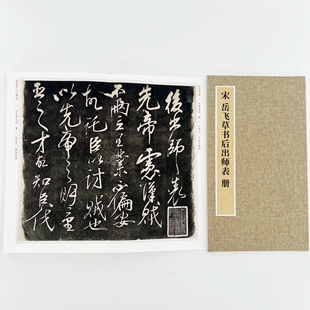 後出師表
先帝慮漢賊
不兩立王業不偏安
故託臣以討賊也
以先帝之明量
臣之才故知臣伐
宋 岳飞草书后出师表 册